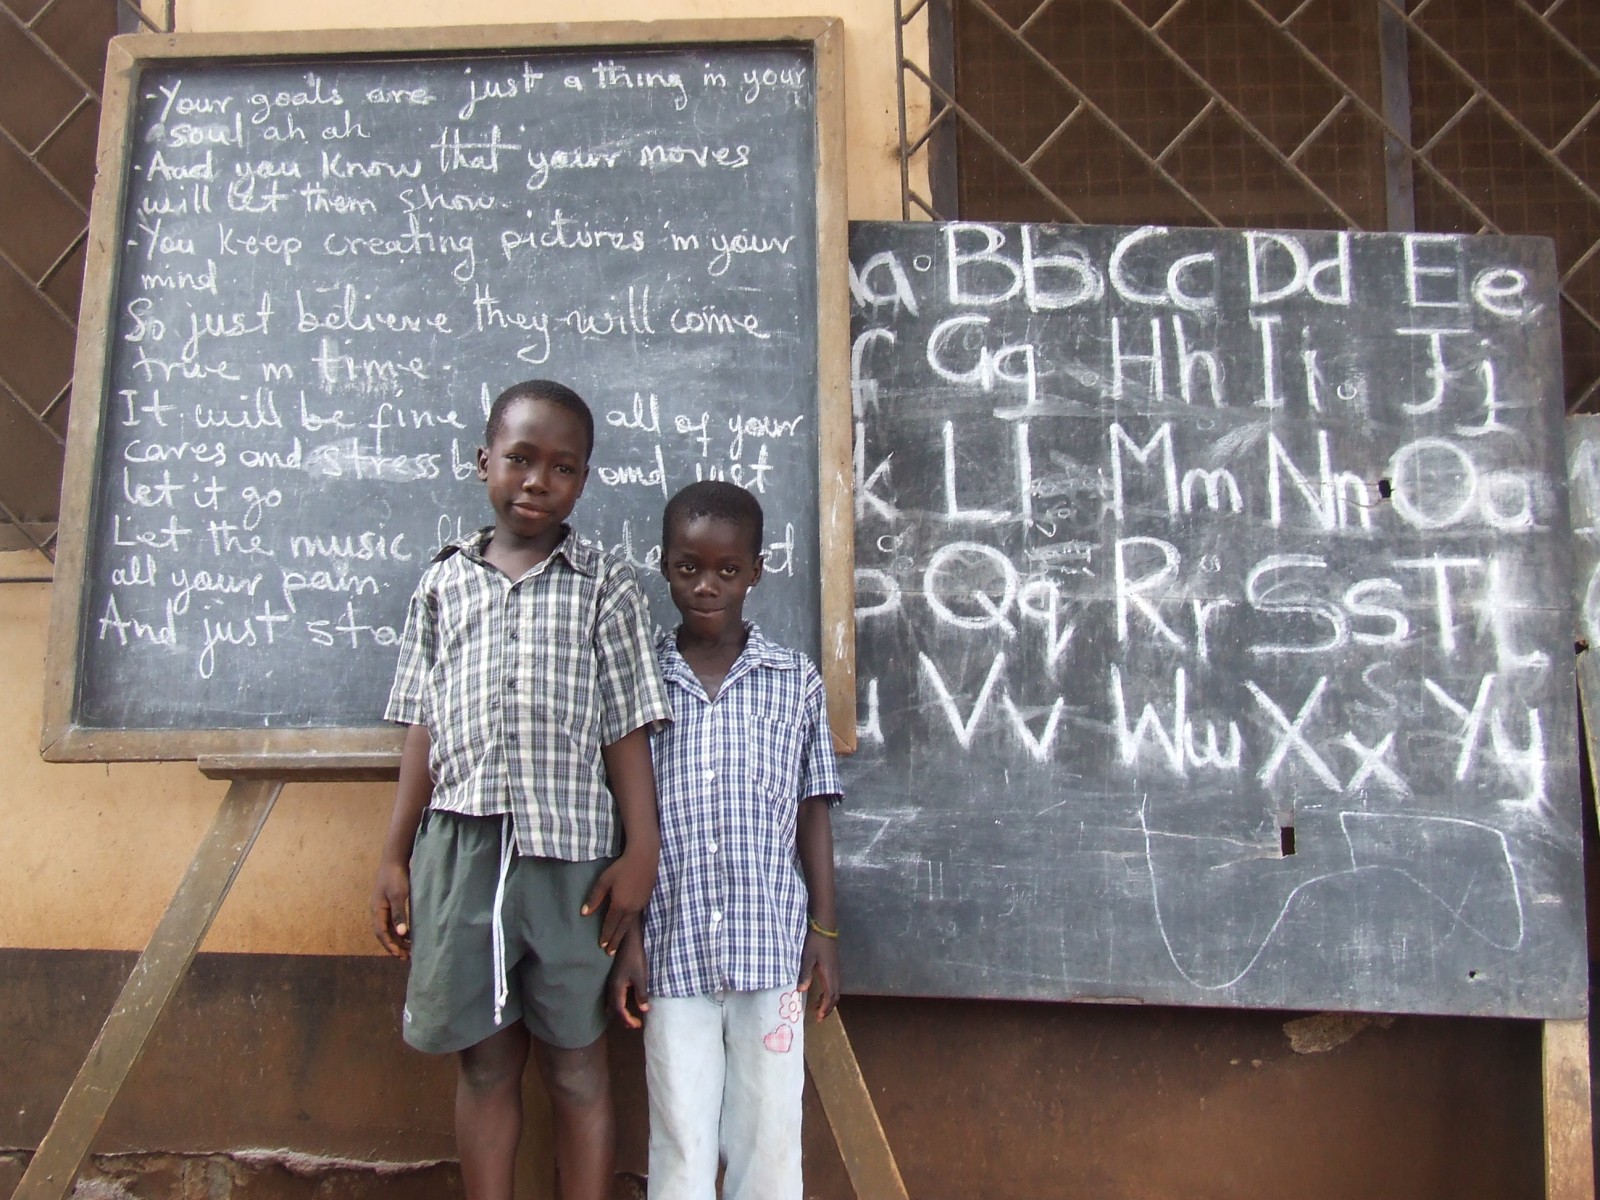 -Your goals are just a thing in your
soul ah ah
-And you know that your moves
will let them show.
-You keep creating pictures in your
mind
So just believe they will come
true in time.
It will be fine all of your
cares and stress and just
let it go
Let the music
all your pain.
And just
a Bb Cc Dd Ee
f Gg Hh Ii Jj
k Ll Mm Nn Oo
p Qq Rr Ss Tt
u Vv Ww Xx Yy
Z